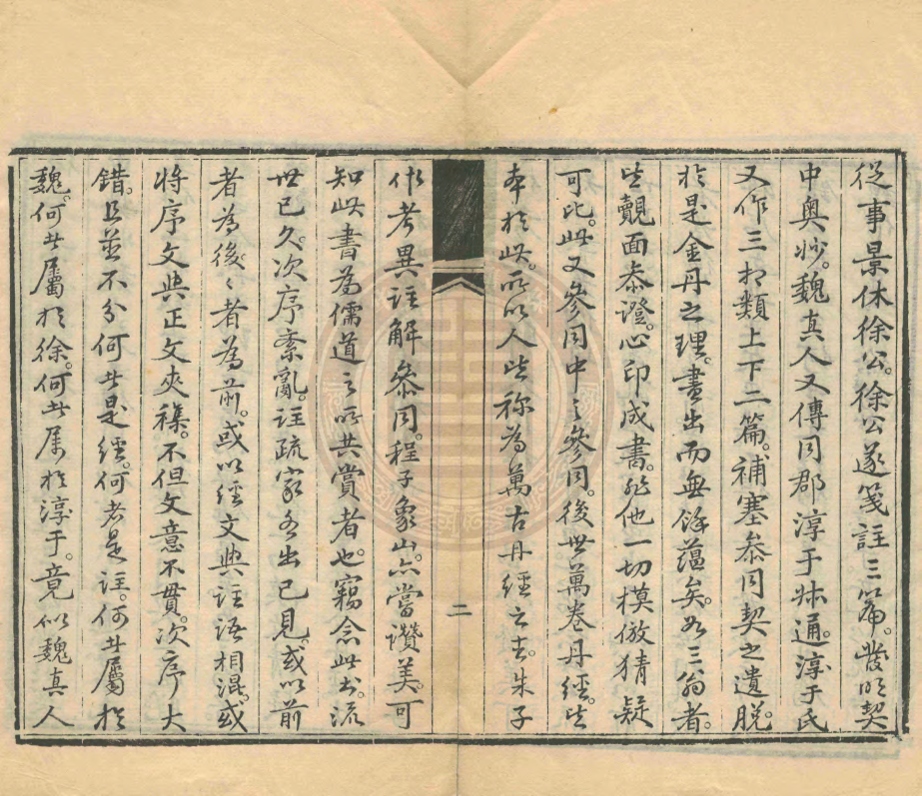 從事景休徐公。徐公遂箋註三篇。發明契
中奧妙。魏真人又傳同郡淳于叔通。淳于氏
又作三相類上下二篇。補塞叅同契之遺脫。
於是金丹之理。盡出而無餘蘊矣。如三翁者。
皆覿面叅證。心印成書。非他一切模倣猜疑
可比。此又參同中之參同。後世萬卷丹經。皆
本於此。所以人皆称為萬古丹經之王。朱子
二
作考異註解叅同。程子象山。亦嘗讚美。可
知此書為儒道之所共賞者也。竊念此書。流
世已久。次序紊亂。註疏家各出己見。或以前
者為後。後者為前。或以經文與註語相混。或
将序文與正文夾襍。不但文意不貫。次序大
錯。且並不分何者是經。何者是註。何者屬於
魏。何者屬於徐。何者属於淳于。竟似魏真人